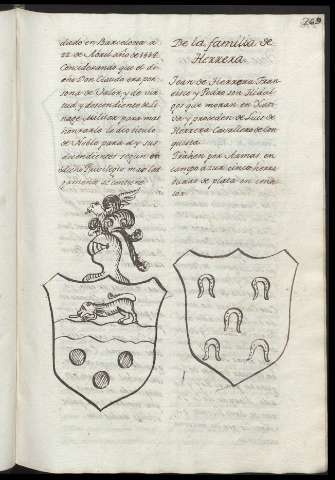 269
dado en Barcelona a
22 de Abril año de
Considerando que el di-
cho Don Claudio era per-
sona de Valor, y de vir-
tud y descendiente de Li-
nage Militar para mas
honrarle le dio titulo
de Noble para el y sus
descendientes segun en
dicho Privilegio mas lar-
gamente se contiene
De la familia de
Herrera
Juan de Herrera, Fran-
cisco y Pedro son Hidal-
gos que moran en Xati-
va y proceden de Luis de
Herrera Cavallero de Con-
quista
Trahen por Armas en
campo azur cinco herra-
duras de plata en